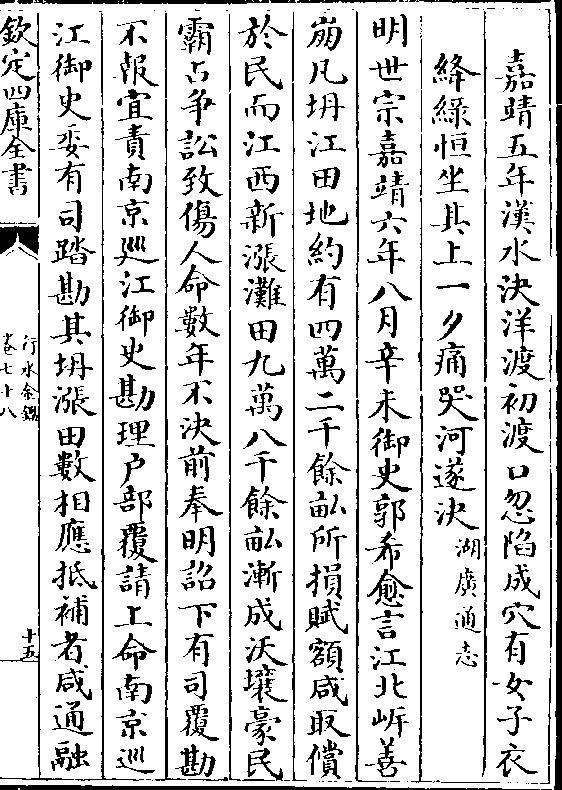 嘉靖五年漢水決洋渡初渡口忽陷成穴有女子衣
絳綠恒坐其上一夕痛哭河遂決湖廣通志
明世宗嘉靖六年八月辛未御史郭希愈言江北岍善
崩凡坍江田地約有四萬二千餘畆所損賦額咸取償
於民而江西新漲灘田九萬八千餘畆漸成沃壤豪民
霸占爭訟致傷人命數年不決前奉明詔下有司覆勘
不報宜責南京廵江御史勘理户部覆請上命南京廵
江御史委有司踏勘其坍漲田數相應抵補者咸通融
欽定四庫全書
行水金鑑
卷七十八
十五